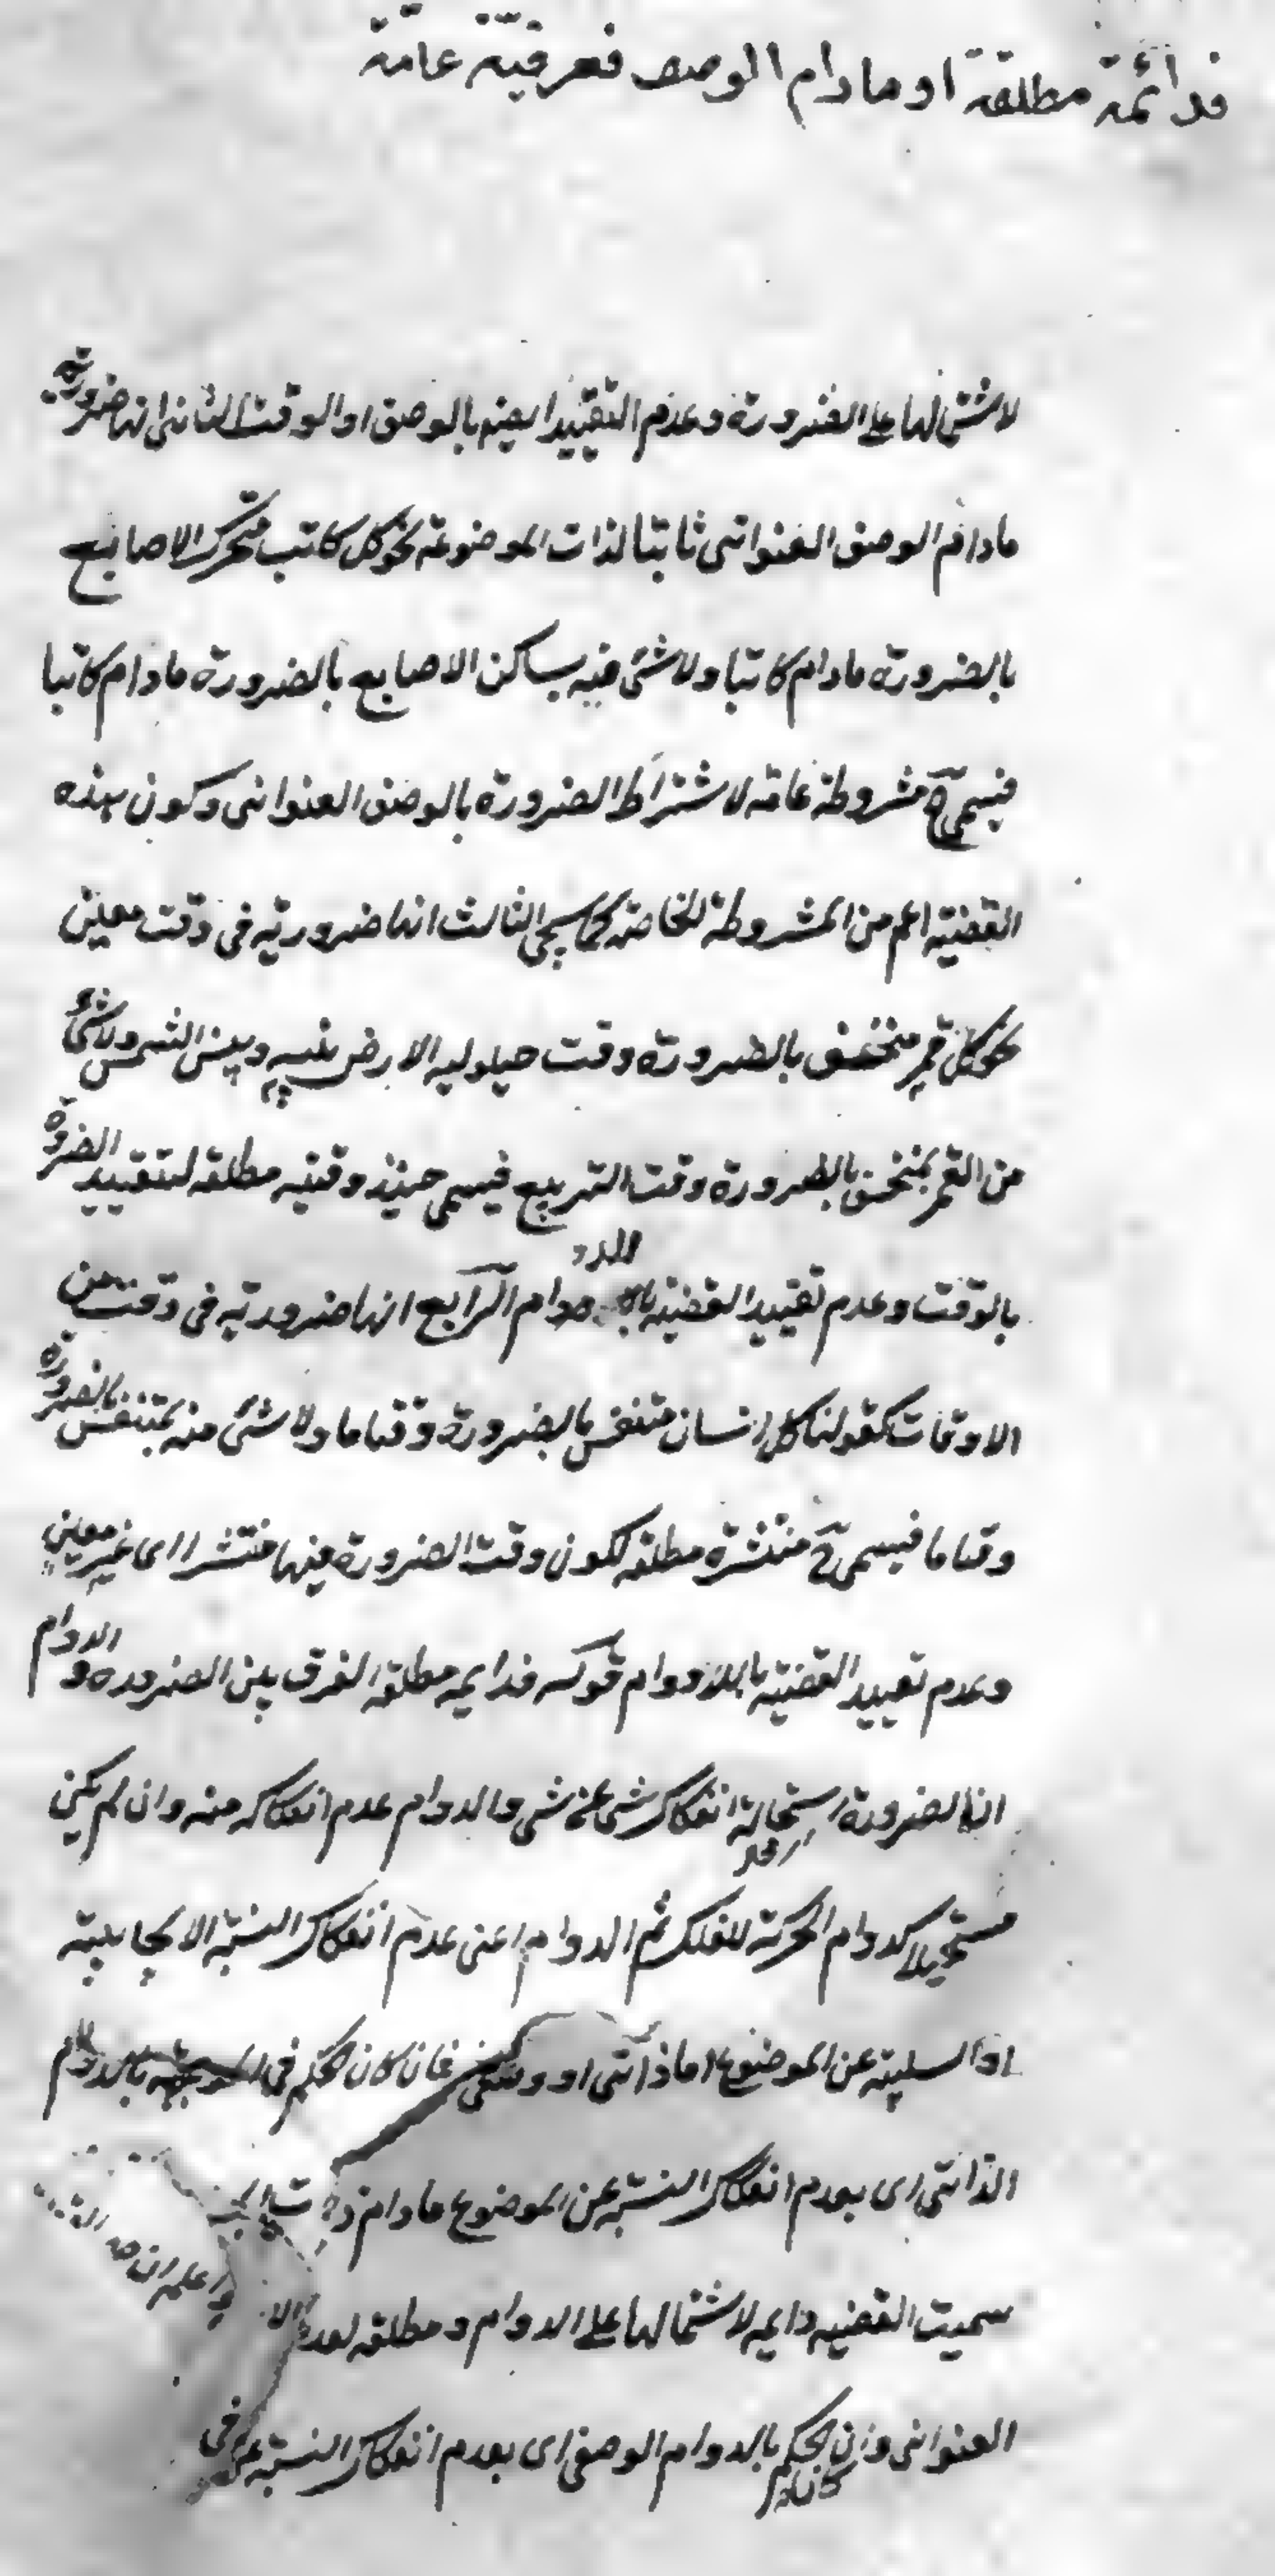 فدائمة مطلقة او مادام الوصف فعرفية عامة
لاشتمالها على الضرورة وعدم التقييد ايضه بالوصف او الوقت الثانى انها ضرورية
مادام الوصف العنوانى ثابتا لذات الموضوعه نحو كل كاتب متحرك الاصابع
بالضرورة مادام كاتبا ولا شئ منه بساكن الاصابع بالضرورة مادام كاتبا
فيسمى ح مشروطة عامة لاشتراط الضرورة بالوصف العنوانى وكون هذه
القضية اعم من المشروطة الخاصة كما سيجئ الثالث انها ضرورية فى وقت معين
نحو كل قمر منخسف بالضرورة وقت حيلوليه الارض بينه وبين الشمس ولا شئ
من القمر بمنخسف بالضرورة وقت التربيع فيسمى حينئذ وقتيه مطلقه لتقييد الضرورة
بالوقت وعدم تقييد القضية باللادوام الرابع انها ضرورية فى وقت من
الاوقات كقولنا كل انسان متنفس بالضرورة وقتا ما ولا شئ منه بمتنفس بالضرورة
وقتا ما فيسمى ح منتشرة مطلقه لكون وقت الضرورة فيها منتشرا اى غير معين
وعدم تقييد القضية باللادوام قوله فدايمه مطلقة الفرق بين الضروره والدوام
ان الضرورة استحالة انفكاك شى عن شى والدوام عدم انفكاكه منه وان لم يكن
مستحيلا كدوام الحركة للفلك ثم الدوام اعنى عدم انفكاك النسبة الايجابية
او السلبية عن الموضوع اما ذاتى او وصفى فان كان الحكم فى الموجهه بالدوام
الذاتى اى بعدم انفكاك النسبة عن الموضوع مادام ذات
سميت القضيه دايمه لاشتمالها على الدوام ومطلقه لعدم
واعلم ان
العنوانى وان كان الحكم بالدوام الوصفى اى بعدم انفكاك النسبة